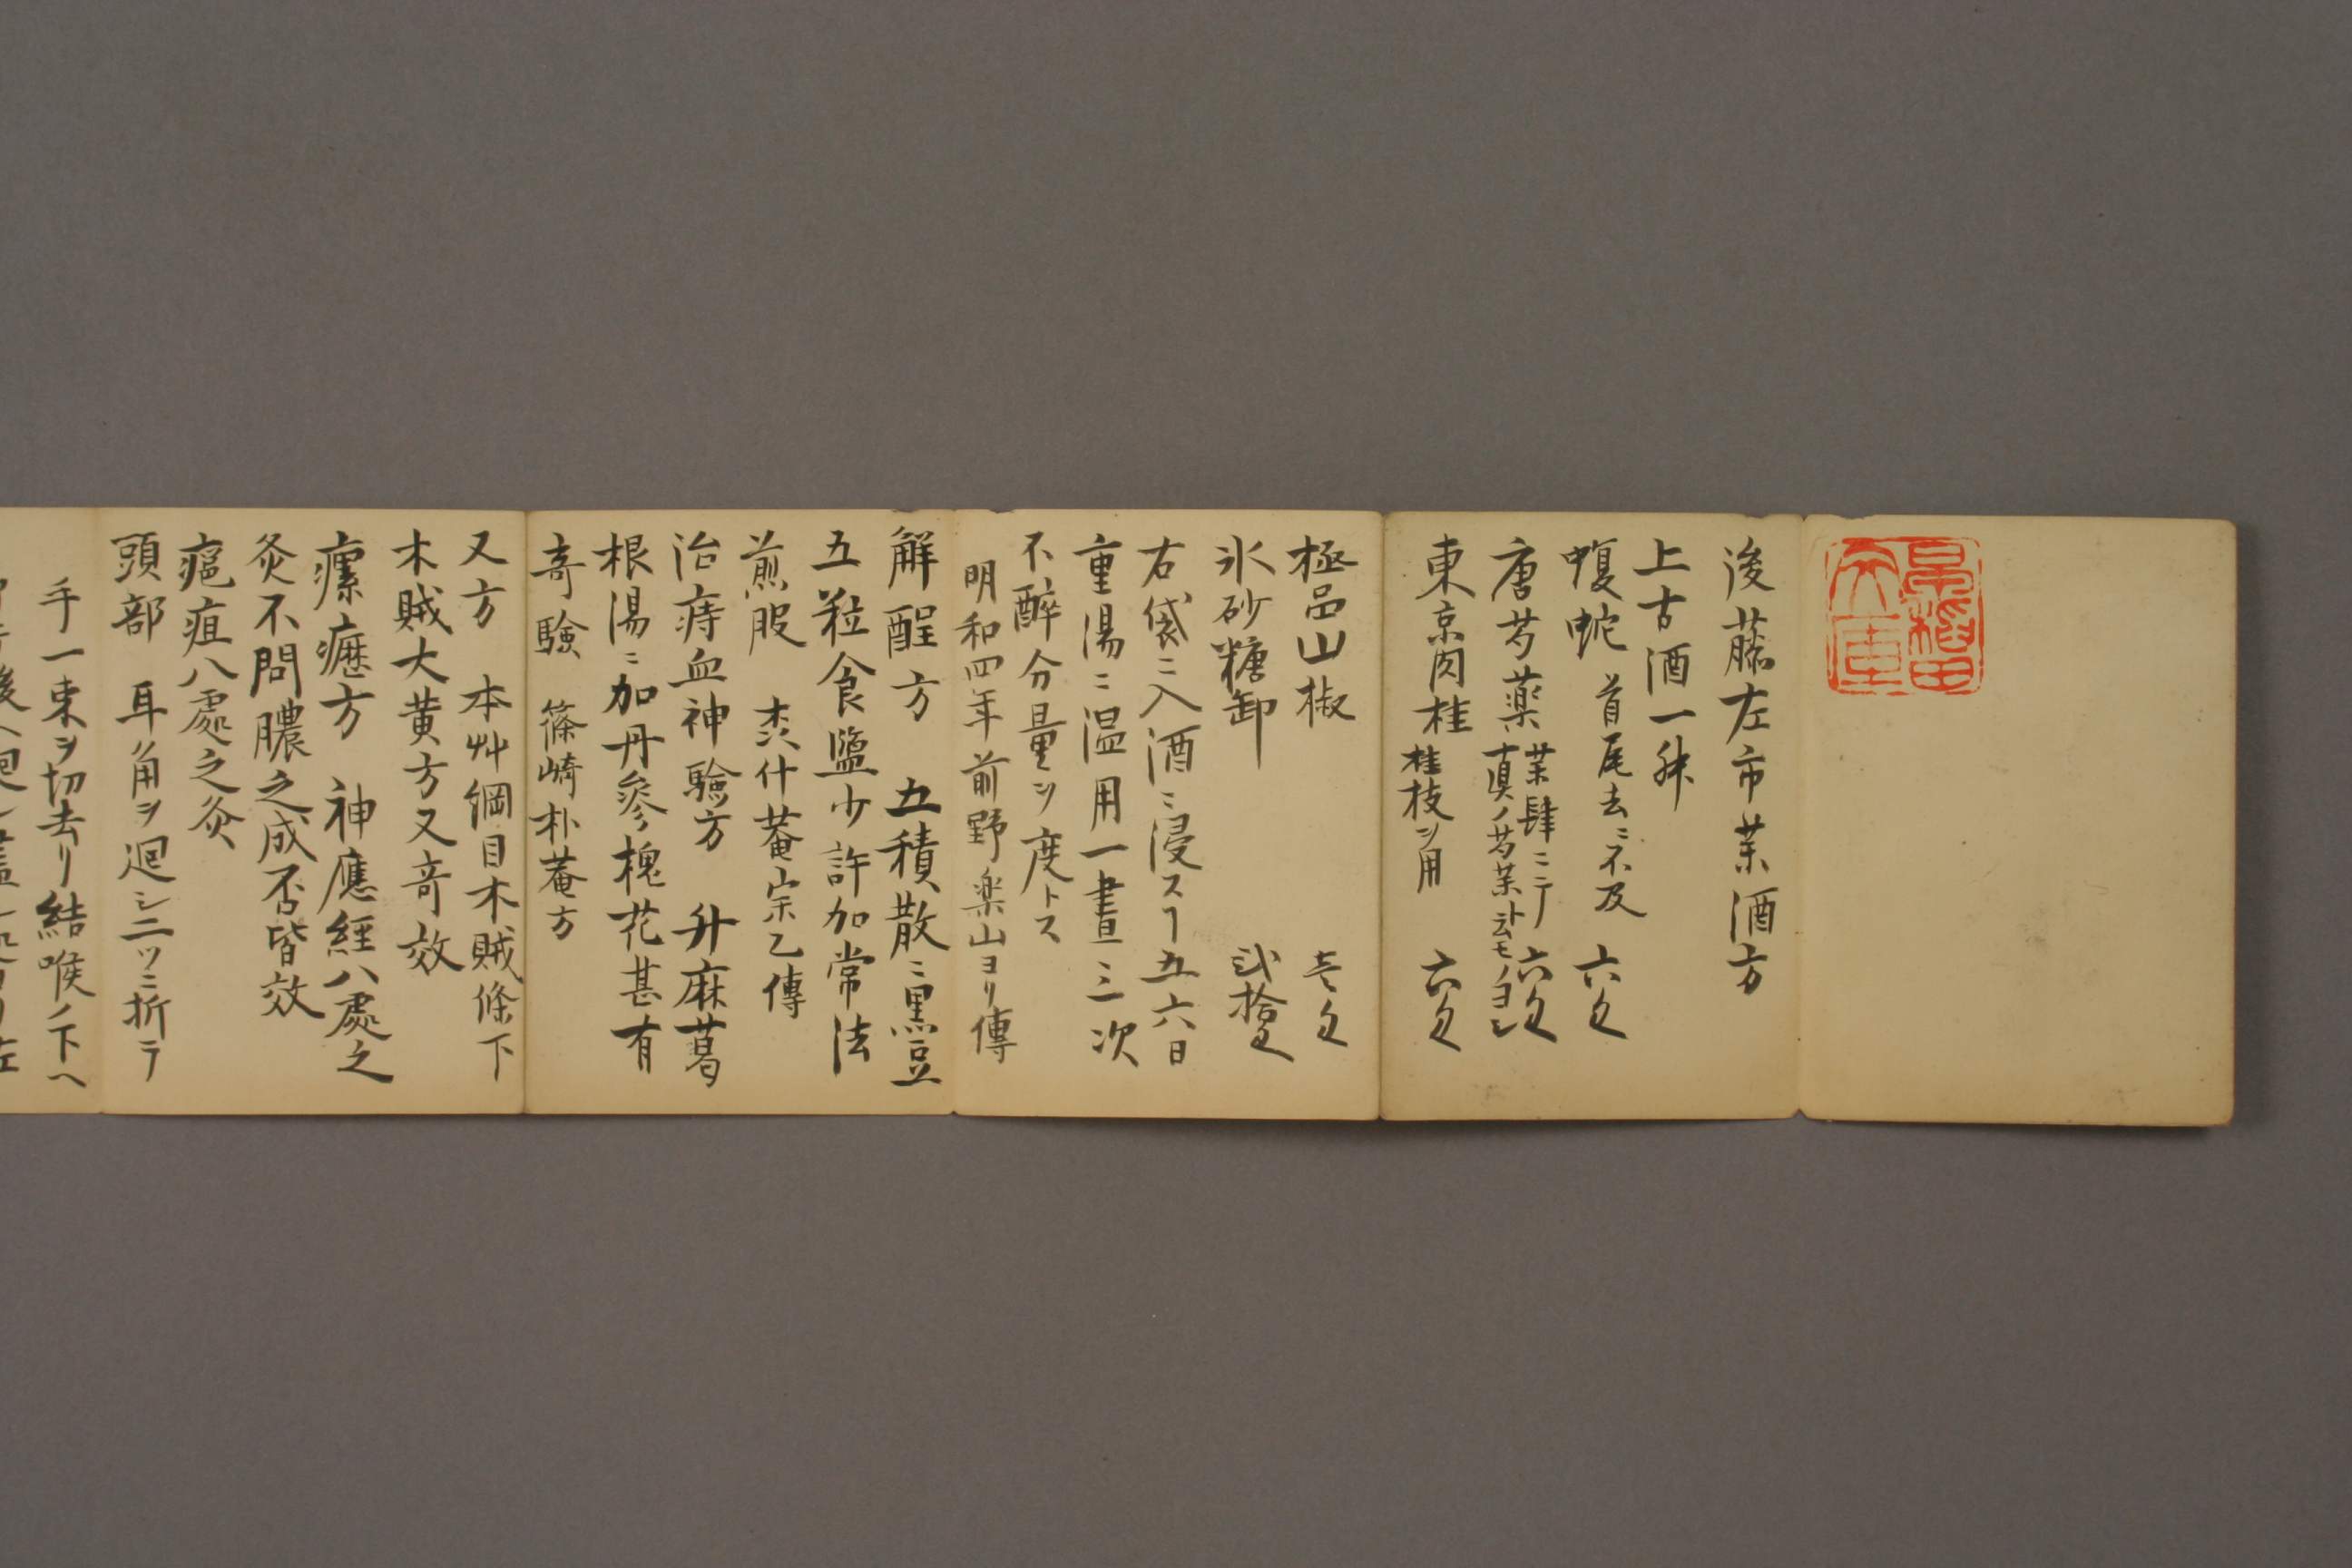 後藤左市薬酒方
上古酒一舛
蝮蛇 首尾去ニ不及 六匁
唐芍薬 薬肆ニテ真ノ芍薬ト云モノヨシ 六匁
東京肉桂 桂枝ヲ用 六匁
極品山椒 壱匁
氷砂糖卸 弐拾匁
右袋ニ入酒ニ浸スヿ五六日
重湯ニ温用一晝ニ三次
不醉分量ヲ度トス
明和四年前野楽山ヨリ傳
解酲方 五積散ニ黒豆
五粒食鹽少許加常法
煎服 什菴宗乙傳
治痔血神驗方 升麻葛
根湯ニ加丹參槐花甚有
奇驗 篠崎朴菴方
又方 本艸綱目木賊條下
木賊大黄方又奇效
瘰癧方 神應経八處之
灸不問膿之成否皆效
瘟疽八處之灸
頭部 耳角ヲ廻シ二ツニ折テ
手一束ヲ切去リ結喉ノ下ヘ